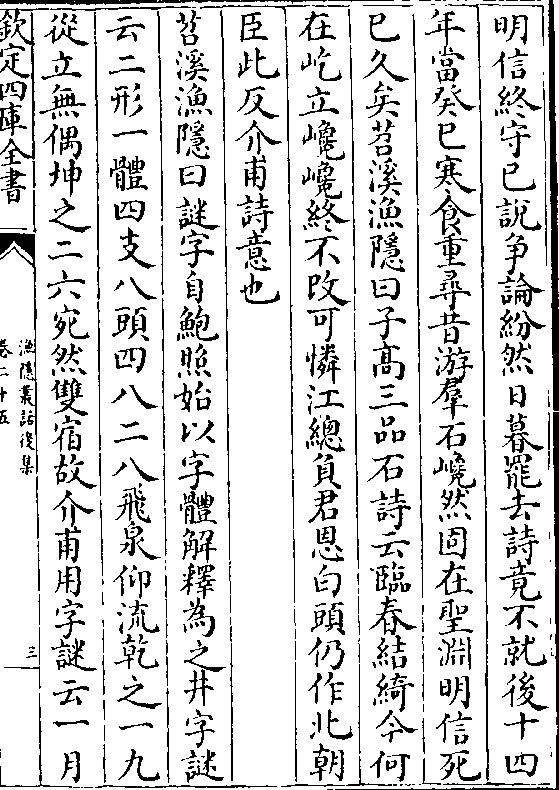 明信終守已說爭論紛然日暮罷去詩竟不就後十四
年當癸巳寒食重尋昔游羣石巉然固在聖淵明信死
已久矣苕溪漁隱曰子高三品石詩云臨春結綺今何
在屹立巉巉終不改可憐江總負君恩白頭仍作北朝
臣此反介甫詩意也
苕溪漁隱曰謎字自鮑照始以字體解釋為之井字謎
云二形一體四支八頭四八二八飛泉仰流乾之一九
從立無偶坤之二六宛然雙宿故介甫用字謎云一月
欽定四庫全書
漁隱叢話後集
卷二十五
三